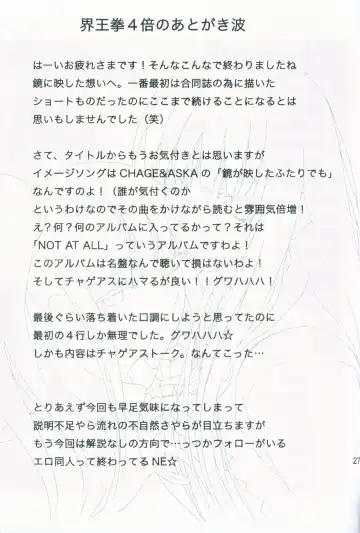 界王拳４倍のあとがき波
はーいお疲れさまです！そんなこんなで終わりましたね
鏡に映した想いへ。一番最初は合同誌の為に描いた
ショートものだったのにここまで続けることになるとは
思いもしませんでした（笑）
さて、タイトルからもうお気付きとは思いますが
イメージソングは CHAGE&ASKA の「鏡が映したふたりでも」
なんですのよ！（誰が気付くのか
というわけなのでその曲をかけながら読むと雰囲気倍増！
え？何？何のアルバムに入ってるかって？それは
「NOT AT ALL」っていうアルバムですわよ！
このアルバムは名盤なんで聴いて損はないわよ！
そしてチャゲアスにハマるが良い！！グワハハハ！
最後ぐらい落ち着いた口調にしようと思ってたのに
最初の４行しか無理でした。グワハハハ☆
しかも内容はチャゲアストーク。なんてこった…
とりあえず今回も早足気味になってしまって
説明不足やら流れの不自然さやらが目立ちますが
もう今回は解説なしの方向で…っつかフォローがいる
エロ同人って終わってる NE☆
27